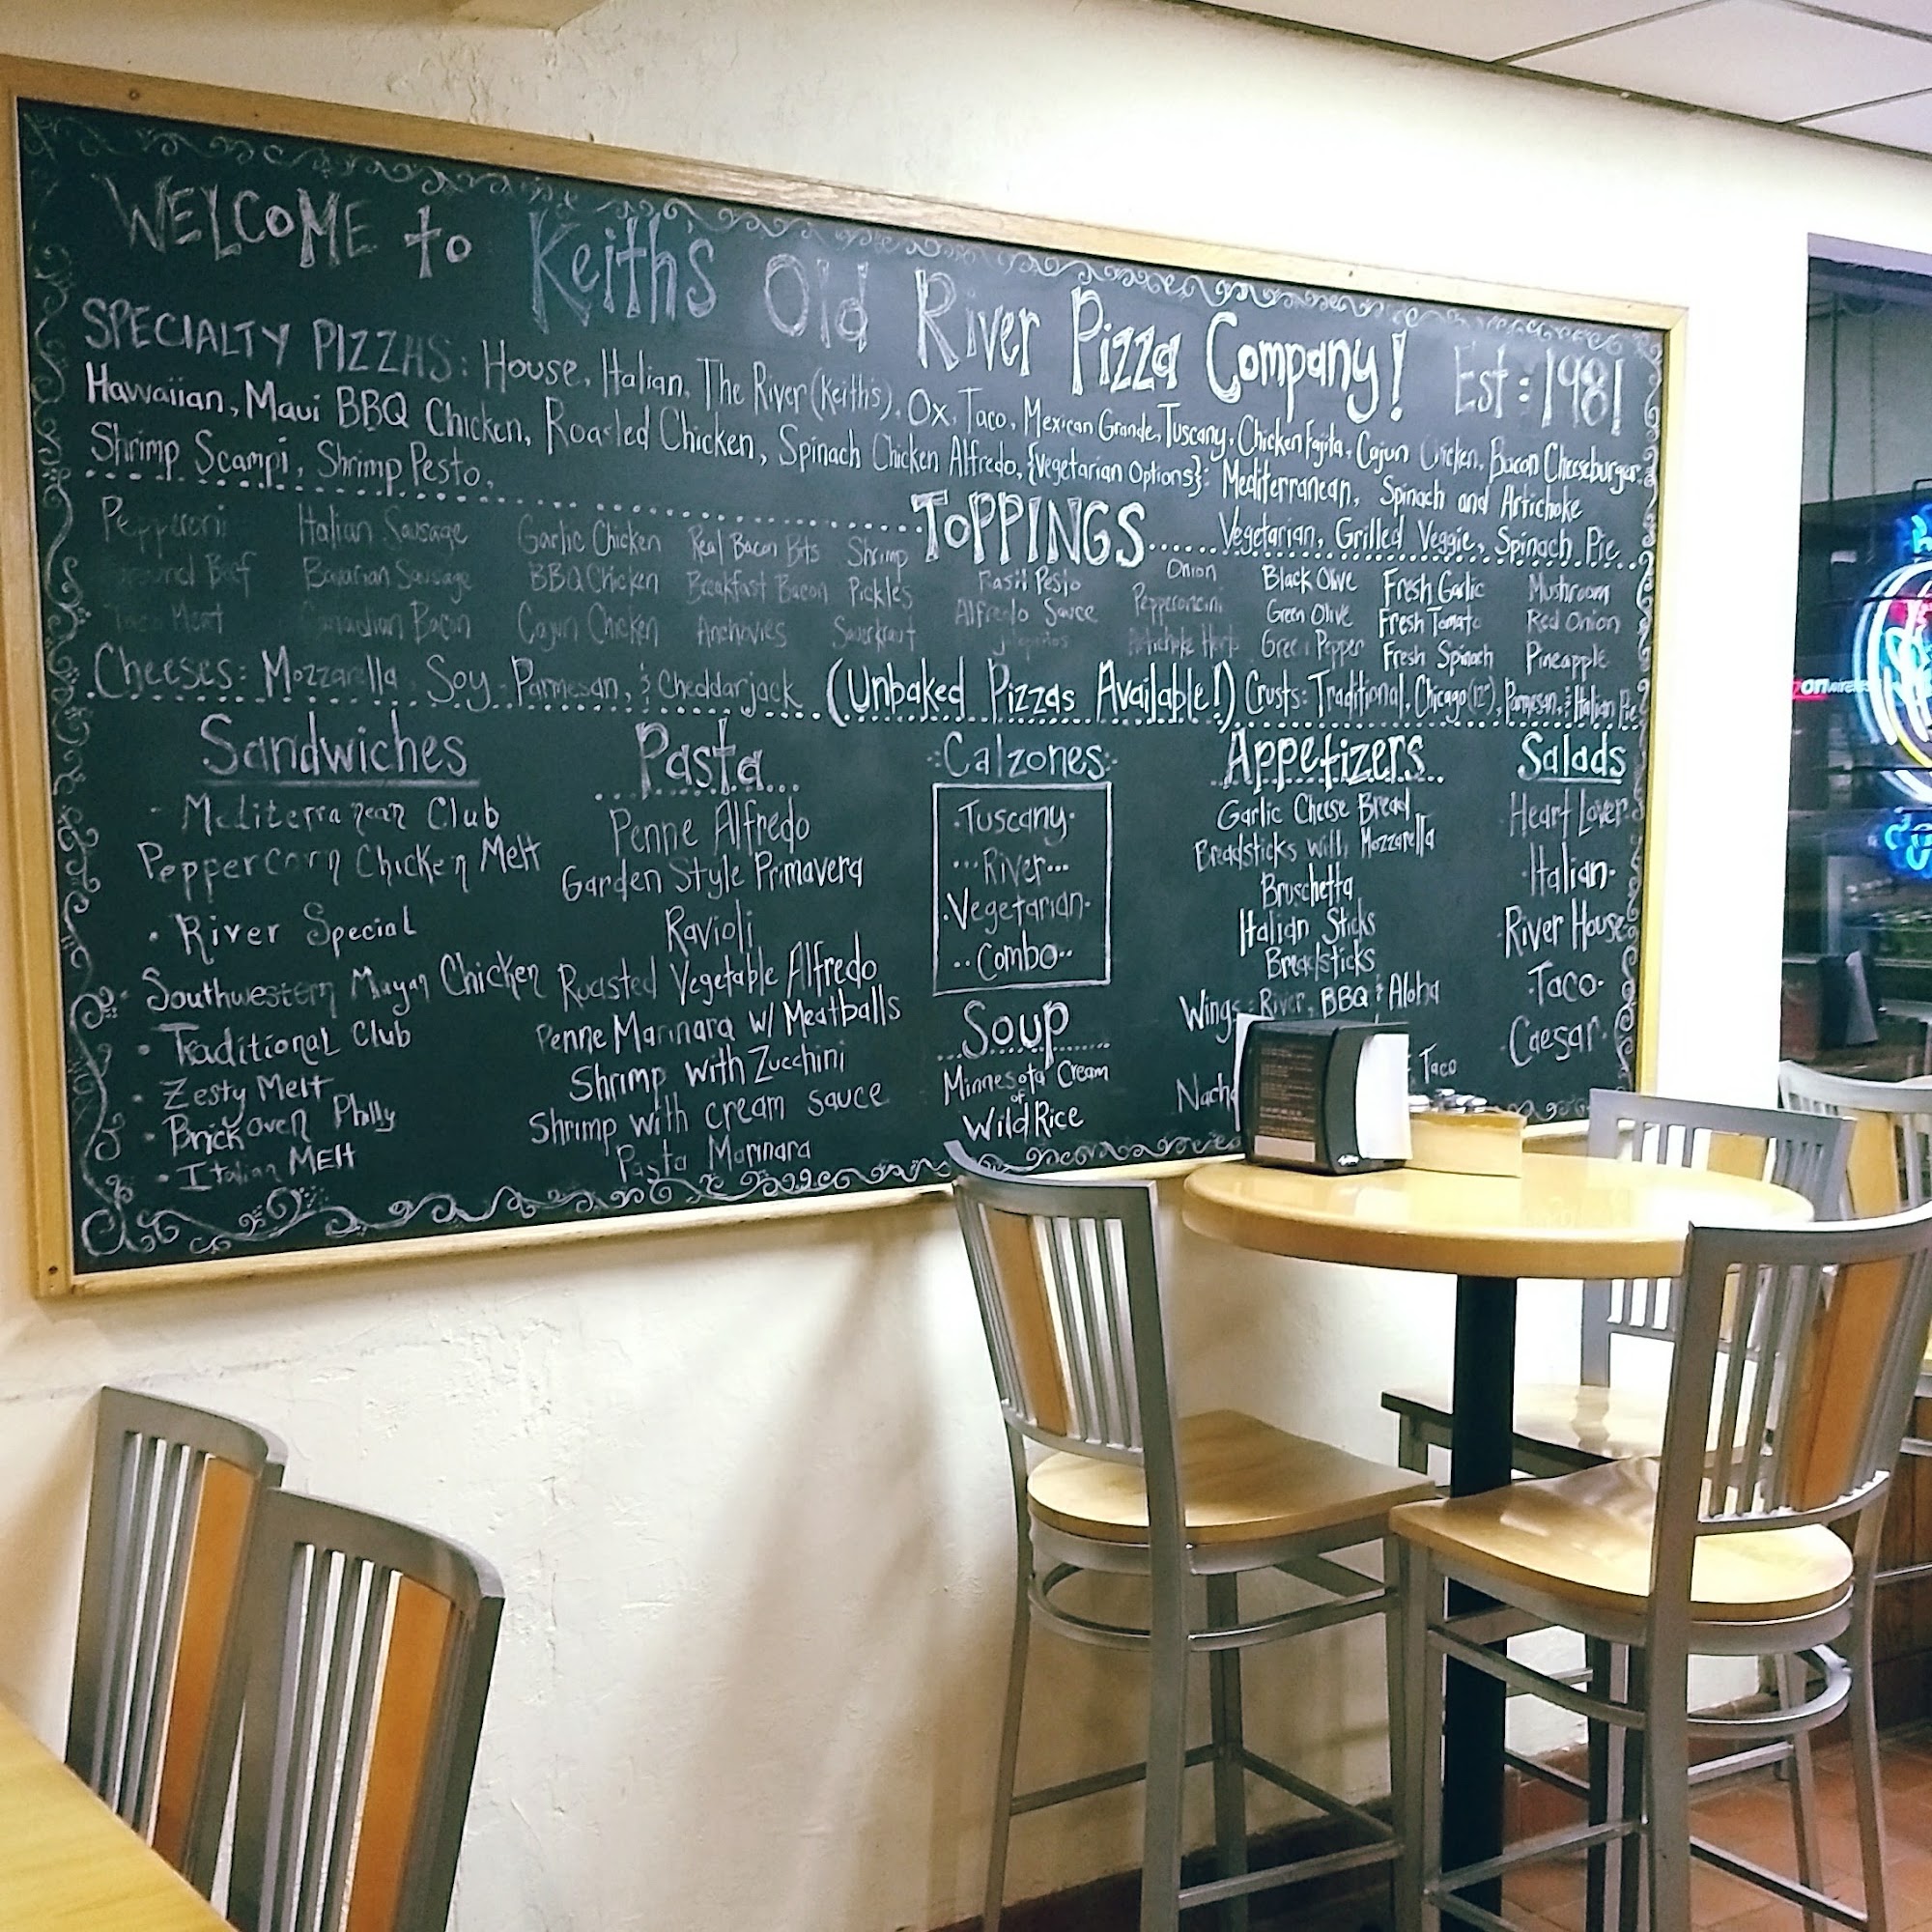 WELCOME to Keith's Old River Pizza Company! Est: 1981
SPECIALTY PIZZAS: House, Italian, The River (Keith's), Ox, Taco, Mexican Grande, Tuscany, Chicken Fajita, Cajun Chicken, Bacon Cheeseburger
Hawaiian, Maui BBQ Chicken, Roasted Chicken, Spinach Chicken Alfredo, {Vegetarian Options}: Mediterranean, Spinach and Artichoke
Shrimp Scampi, Shrimp Pesto,
Vegetarian, Grilled Veggie, Spinach Pie
TOPPINGS
Pepperoni Italian Sausage Garlic Chicken Real Bacon Bits Shrimp Basil Pesto Onion Black Olive Fresh Garlic Mushroom
Ground Beef Bavarian Sausage BBQ Chicken Breakfast Bacon Pickles Alfredo Sauce Pepperoncini Green Olive Fresh Tomato Red Onion
Taco Meat Canadian Bacon Cajun Chicken Anchovies Sauerkraut Jalapeños Artichoke Green Pepper Fresh Spinach Pineapple
Cheeses: Mozzarella, Soy, Parmesan, & Cheddarjack (Unbaked Pizzas Available!) Crusts: Traditional, Chicago (12"), Parmesan, & Italian Pie
Sandwiches
- Mediterranean Club
Peppercorn Chicken Melt
• River Special
Southwestern Mayan Chicken
• Traditional Club
• Zesty Melt
• Brickoven Philly
• Italian MElt
Pasta
Penne Alfredo
Garden Style Primavera
Ravioli
Roasted Vegetable Alfredo
Penne Marinara w/ Meatballs
Shrimp with Zucchini
Shrimp with cream sauce
Pasta Marinara
Calzones
Tuscany
River
Vegetarian
Combo
Soup
Minnesota Cream
of
Wild Rice
Appetizers
Garlic Cheese Bread
Breadsticks with Mozzarella
Bruschetta
Italian Sticks
Breadsticks
Wings: River, BBQ & Aloha
Nach Taco
Salads
Heart Lover
Italian
River House
Taco
Caesar